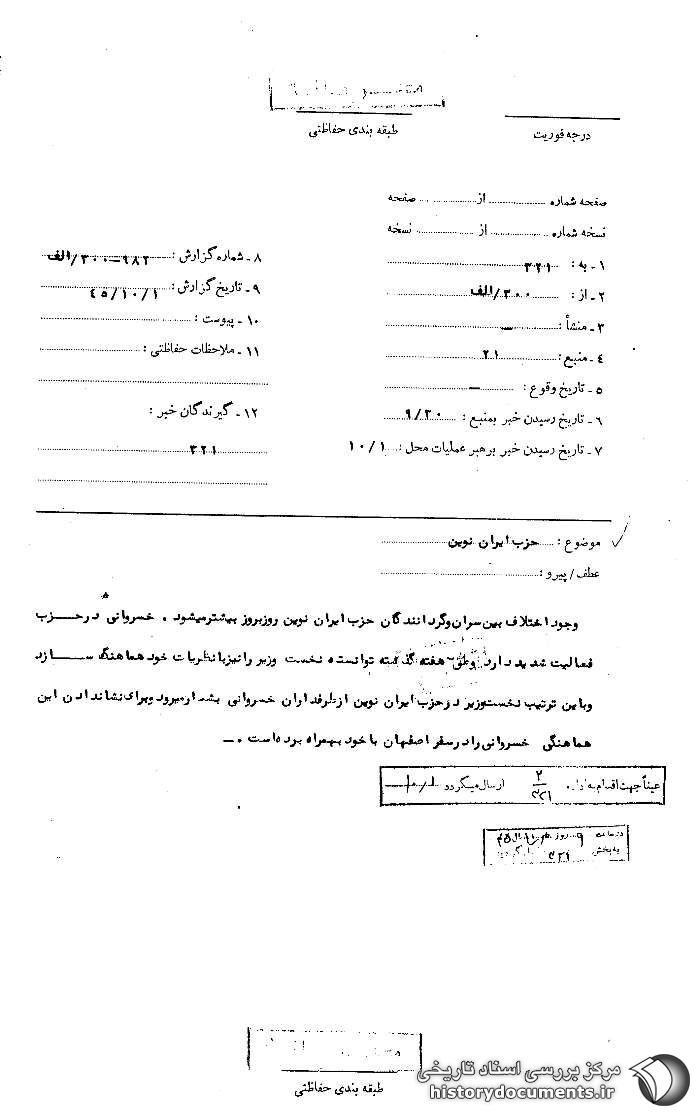 طبقه بندی حفاظتی
درجه فوریت
صفحه شماره ........ از ........ صفحه
نسخه شماره ........ از ........ نسخه
۱ - به : ۳۲۱
۲ - از : ۳۰۰/الف
۳ - منشأ : —
۴ - منبع : ۲۱
۵ - تاریخ وقوع : —
۶ - تاریخ رسیدن خبر بمنبع : ۹/۳۰
۷ - تاریخ رسیدن خبر برهبر عملیات محل : ۱۰/۱
۸ - شماره گزارش : ۹۸۲-۳۰۰/الف
۹ - تاریخ گزارش : ۴۵/۱۰/۱
۱۰ - پیوست :
۱۱ - ملاحظات حفاظتی :
۱۲ - گیرندگان خبر :
۳۲۱
موضوع : حزب ایران نوین
عطف / پیرو :
وجود اختلاف بین سران و گردانندگان حزب ایران نوین روزبروز بیشتر میشود . خسروانی در حزب
فعالیت شدید دارد وطی هفته گذشته توانسته نخست وزیر را نیز با نظریات خود هماهنگ سازد
و باین ترتیب نخست وزیر در حزب ایران نوین از طرفداران خسروانی بشمار میرود و برای نشان دادن این
هماهنگی خسروانی را در سفر اصفهان با خود بهمراه برده است .-
عیناً جهت اقدام به اداره ۲/۳۲۱ ارسال میگردد
در ساعت ۹ روز
به بخش ۳۲۱
طبقه بندی حفاظتی
مرکز بررسی اسناد تاریخی
historydocuments.ir